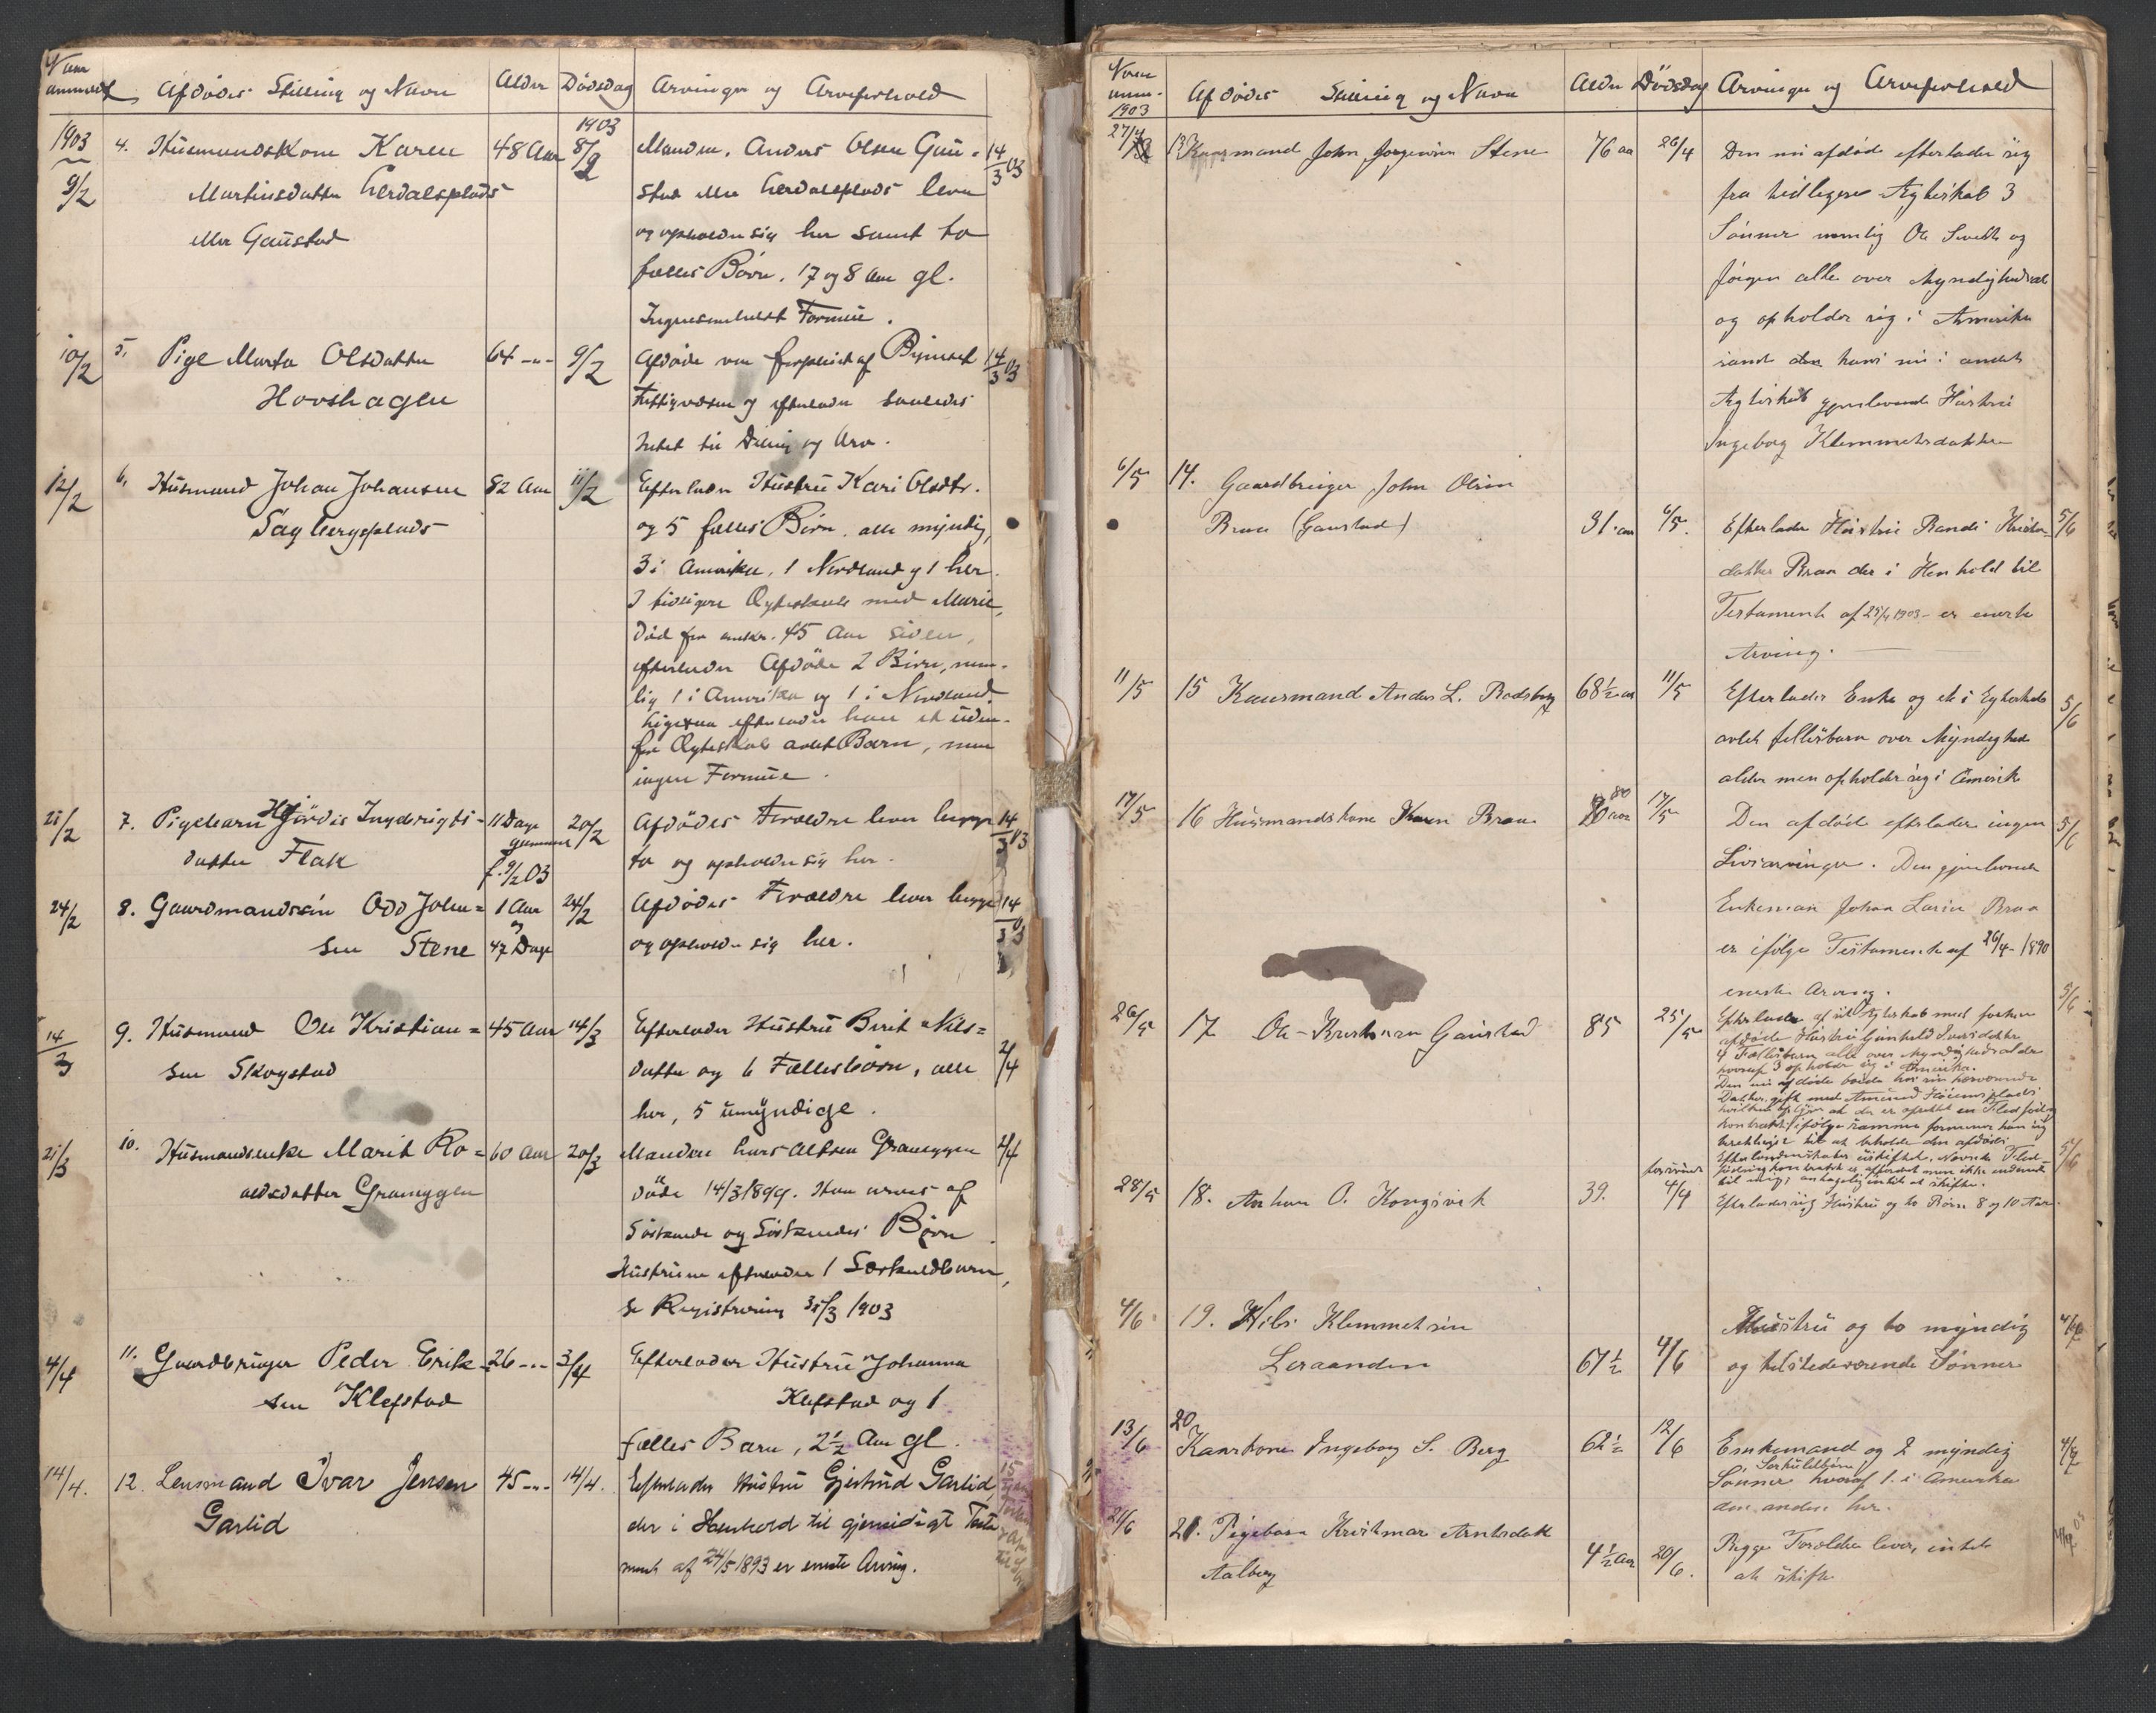 Afdødes Stilling og Navn Alder Dødsdag Arvinger og Arveforhold
1903 4. Husmandskone Karen 48 Aar 1903 8/2 Manden, Anders Olsen Gau-
9/2 Martinsdatter Lerdalsplads stad eller Lerdalsplads lever
eller Gaustad og opholder sig her samt to
fælles Børn, 17 og 8 Aar gl.
Ingensomhelst Formue.
14/3 03
10/2 5. Pige Marta Olsdatter 64 -"- 9/2 Afdøde var forpleiet af Bynesset
Hovshagen Fattigvæsen og efterlader saaledes
Intet til Deling og Arv.
14/3 03
12/2 6. Husmand Johan Johansen 82 Aar 11/2 Efterlader Hustru Kari Olsdtr.
Sagbergsplads og 5 fælles Børn, alle myndig,
3 i Amerika, 1 Nordland og 1 her.
I tidligere Ægteskab med Marie,
død for omkr. 45 Aar siden,
efterlader Afdøde 2 Børn, nem-
lig 1 i Amerika og 1 i Nordland
Ligesaa efterlader han et uden-
for Ægteskab avlet Barn, men
ingen Formue.
21/2 7. Pigebarn Hjørdis Ingebrigts- 11 Dage 20/2 Afdødes Forældre lever begge
datter Flak gammel to og opholder sig her.
f. 9/2 03
14/3 03
24/2 8. Gaardmandssøn Odd John= 1 Aar 24/2 Afdødes Forældre lever begge
sen Stene og 47 Dage og opholder sig her.
14/3 03
14/3 9. Husmand Ole Kristian= 45 Aar 14/3 Efterlader Hustru Berit Nils=
sen Skogstad datter og 6 Fællesbørn, alle
her, 5 umyndige.
2/4
21/3 10. Husmandsenke Marit Ro= 60 Aar 20/3 Manden Lars Altsen Graneggen
aldsdatter Graneggen døde 14/3 1899. Han arves af
Søskende og Søskendes Børn.
Hustruen efterlader 1 Særkuldbarn,
se Registrering 31/3 1903
2/4
4/4 11. Gaardbruger Peder Erik= 26 -"- 3/4 Efterlader Hustru Johanna
sen Klefstad Klefstad og 1
fælles Barn, 2½ Aar gl.
14/4. 12. Lensmand Ivar Jensen 45 -"- 14/4. Efterlader Hustru Gjertrud Garlid,
Garlid der i Henhold til gjensidigt Testa
ment af 24/5 1893 er eneste Arving.
1903
Afdødes Stilling og Navn Alder Dødsdag Arvinger og Arveforhold
27/4 13 Kaarmand John Jørgensen Stene 76 aar 26/4 Den nu afdøde efterlader sig
fra tidligere Ægteskab 3
Sønner nemlig Ole Sivert og
Jørgen alle over Myndighedsal
og opholder sig i Amerika
samt den hans nu i andet
Ægteskab gjenlevende Hustru
Ingeborg Klemmetsdatter
6/5 14. Gaardbruger John Olsen
Braa (Gaustad) 31. aar 6/5. Efterlader Hustru Randi
datter Braa der i Henhold til
Testament af 25/4 1903 - er eneste
Arving.
5/6
11/5 15 Kaarmand Anders L. Rodsberg 68½ aar 11/5 Efterlader Enke og et i Egteskab
avlet fellesbarn over Myndighed
alder men opholder sig i Amerik
5/6
17/5 16 Husmandskone Karen Braa 80 aar 17/5 Den afdøde efterlader ingen
Livsarvinger. Den gjenlevende
Enkeman Johan Larsen Braa
er ifølge Testament af 26/4 - 1890
eneste Arving.
5/6
26/5 17 Ole Kristian Gaustad 85 25/5 Efterlader af sit Ægteskab med forhen
afdøde Hustru Gunhild Iversdatter
4 Fællesbarn alle over Myndighedsalder
hvoraf 3 opholder sig i Amerika.
Den nu afdøde boede hos sin herværende
Datter, gift med Amund
hvilken oplyser at der er oprettet en Fledføring
kontrakt, ifølge samme formener han sig
berettiget til at beholde den afdødes
Efterladenskaber uskiftet. Nævnte Fled-
føringkontrakt er affordret men ikke indsendt
til mig; antagelig intet at skifte.
5/6
28/5 18. Anton O. Kongsvik 39. forsvundet 4/4 Efterlader sig Hustru og to Børn 8 og 10 Aar.
5/6
4/6 19. Nils Klemmetsen Hustru og to myndig
Leraanden 67½ 4/6 og tilstedeværende Sønner
13/6 20 Kaarkone Ingeborg S. Berg 62½ 12/6 Enkemand og 2 myndig
Særkuldbørn
Sønner hvoraf 1. i Amerika
den anden her.
21/6 21. Pigebarn Kristmar Arntsdatt 4½ aar 20/6. Begge Forældre lever, intet
Aalberg at skifte